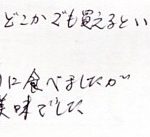 どこかでも買えるとい
に食べましたが
美味でした